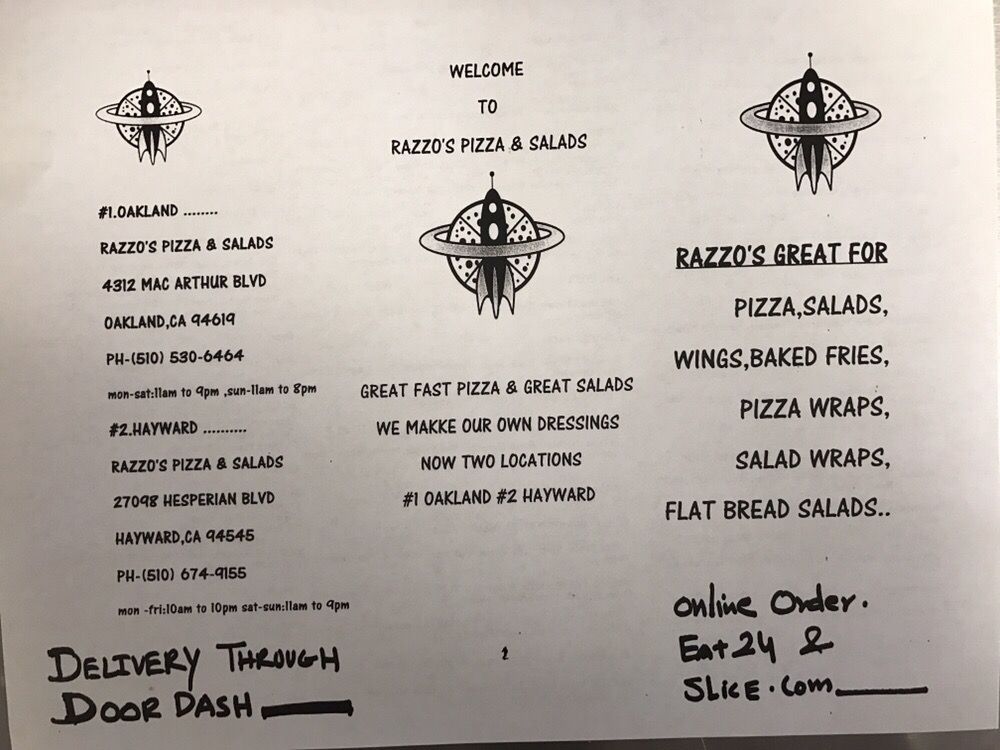 #1.OAKLAND ........
RAZZO'S PIZZA & SALADS
4312 MAC ARTHUR BLVD
OAKLAND,CA 94619
PH-(510) 530-6464
mon-sat:11am to 9pm ,sun-11am to 8pm
#2.HAYWARD ..........
RAZZO'S PIZZA & SALADS
27098 HESPERIAN BLVD
HAYWARD,CA 94545
PH-(510) 674-9155
mon -fri:10am to 10pm sat-sun:11am to 9pm
DELIVERY THROUGH
DOOR DASH
WELCOME
TO
RAZZO'S PIZZA & SALADS
GREAT FAST PIZZA & GREAT SALADS
WE MAKKE OUR OWN DRESSINGS
NOW TWO LOCATIONS
#1 OAKLAND #2 HAYWARD
RAZZO'S GREAT FOR
PIZZA,SALADS,
WINGS,BAKED FRIES,
PIZZA WRAPS,
SALAD WRAPS,
FLAT BREAD SALADS..
Online Order.
Eat24 &
SLICE.Com